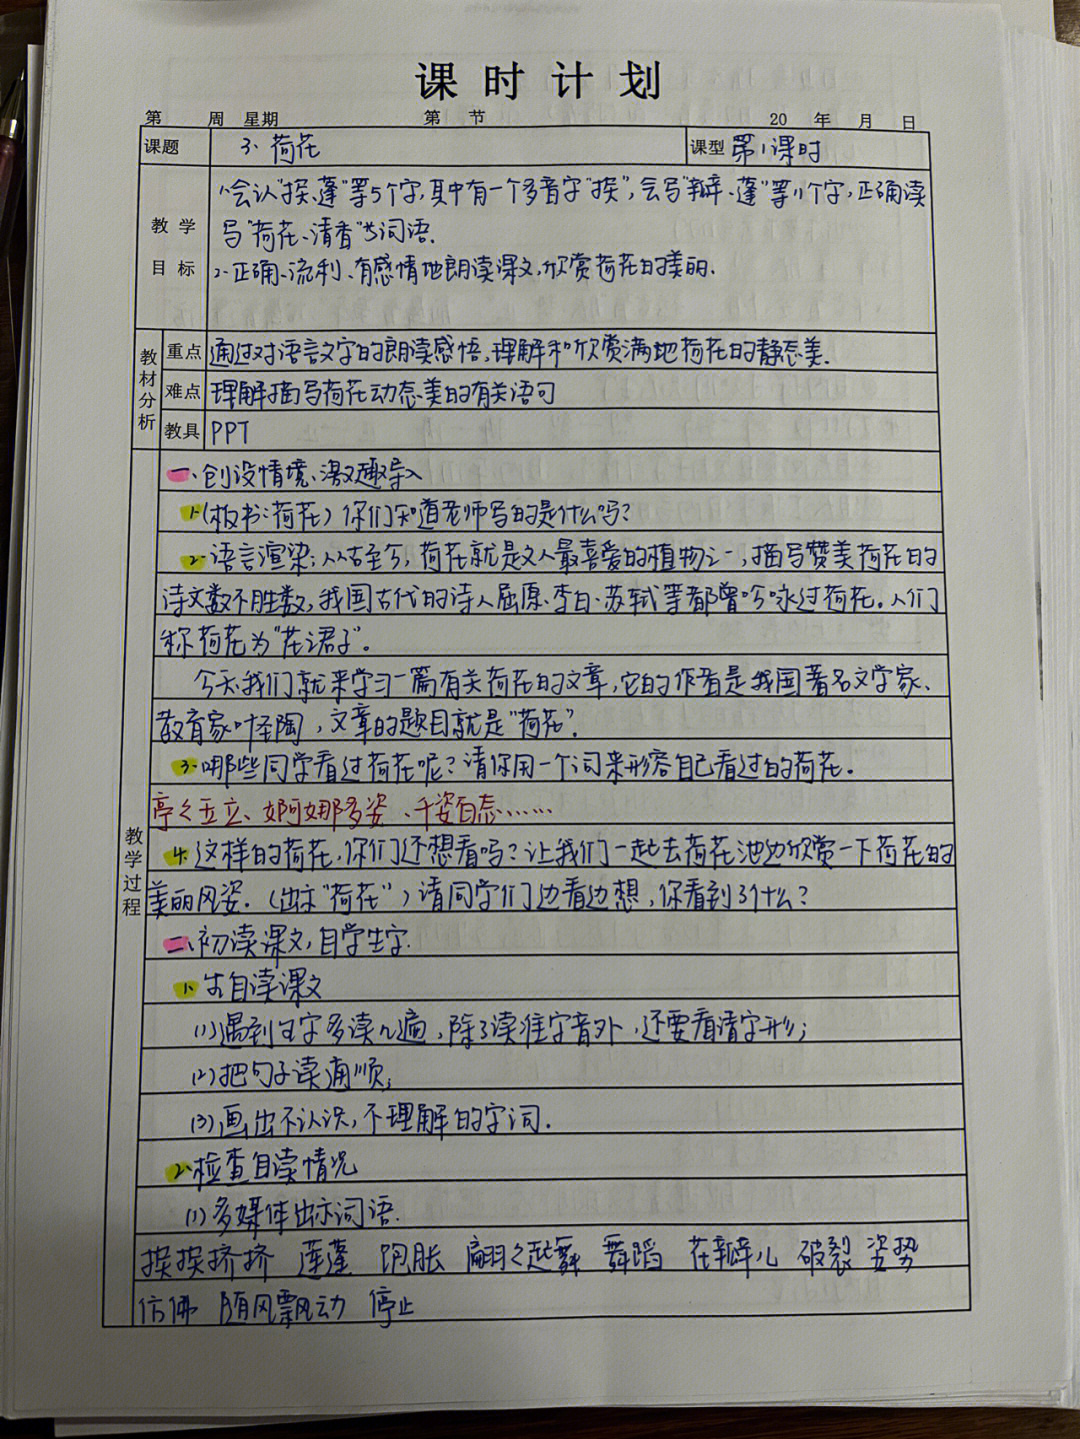 课时计划
第 周 星期 第 节 20 年 月 日
课题 3、荷花 课型 第1课时
教学目标
1、会认"挨、蓬"等5个字,其中有一个多音字"挨",会写"瓣、蓬"等11个字,正确读
写"荷花、清香"等词语.
2、正确、流利、有感情地朗读课文,欣赏荷花的美丽.
教材分析
重点 通过对语言文字的朗读感悟,理解和欣赏满地荷花的静态美.
难点 理解描写荷花动态美的有关语句
教具 PPT
教学过程
一、创设情境、激趣导入
1、(板书:荷花)你们知道老师写的是什么吗?
2、语言渲染:从古至今,荷花就是文人最喜爱的植物之一,描写赞美荷花的
诗文数不胜数,我国古代的诗人屈原、李白、苏轼等都曾吟咏过荷花.人们
称荷花为"花中君子".
今天我们就来学习一篇有关荷花的文章,它的作者是我国著名文学家、
教育家叶圣陶,文章的题目就是"荷花".
3、哪些同学看过荷花呢?请你用一个词来形容自己看过的荷花.
亭々玉立、婀娜多姿、千姿百态......
4、这样的荷花,你们还想看吗?让我们一起去荷花池边欣赏一下荷花的
美丽风姿.(出示"荷花")请同学们边看边想,你看到了什么?
二、初读课文,自学生字.
1、生自读课文
(1)遇到生字多读几遍,除了读准字音外,还要看清字形;
(2)把句子读通顺;
(3)画出不认识,不理解的字词.
2、检查自读情况
(1)多媒体出示词语.
挨挨挤挤 莲蓬 饱胀 翩々起舞 舞蹈 花瓣儿 破裂 姿势
仿佛 随风飘动 停止